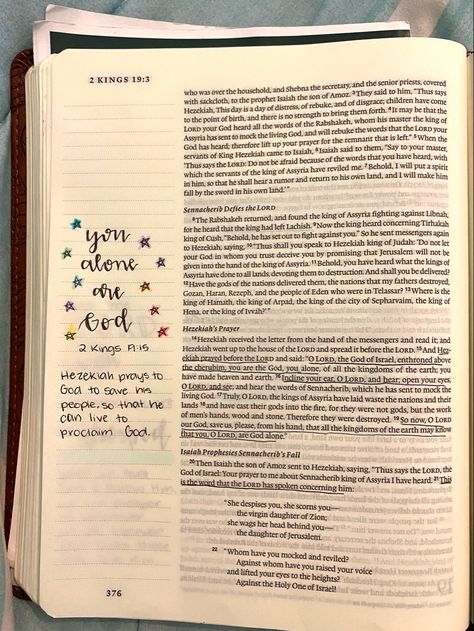 2 KINGS 19:3
who was over the household, and Shebna the secretary, and the senior priests, covered
with sackcloth, to the prophet Isaiah the son of Amoz. 3They said to him, "Thus says
Hezekiah, This day is a day of distress, of rebuke, and of disgrace; children have come
to the point of birth, and there is no strength to bring them forth. 4It may be that the
LORD your God heard all the words of the Rabshakeh, whom his master the king of
Assyria has sent to mock the living God, and will rebuke the words that the LORD your
God has heard; therefore lift up your prayer for the remnant that is left." 5When the
servants of King Hezekiah came to Isaiah, 6Isaiah said to them, "Say to your master,
'Thus says the LORD: Do not be afraid because of the words that you have heard, with
which the servants of the king of Assyria have reviled me. 7Behold, I will put a spirit
in him, so that he shall hear a rumor and return to his own land, and I will make him
fall by the sword in his own land.'"
Sennacherib Defies the LORD
8The Rabshakeh returned, and found the king of Assyria fighting against Libnah,
for he heard that the king had left Lachish. 9Now the king heard concerning Tirhakah
king of Cush, "Behold, he has set out to fight against you." So he sent messengers again
to Hezekiah, saying, 10"Thus shall you speak to Hezekiah king of Judah: 'Do not let
your God in whom you trust deceive you by promising that Jerusalem will not be
given into the hand of the king of Assyria. 11Behold, you have heard what the kings of
Assyria have done to all lands, devoting them to destruction. And shall you be delivered?
12Have the gods of the nations delivered them, the nations that my fathers destroyed,
Gozan, Haran, Rezeph, and the people of Eden who were in Telassar? 13Where is the
king of Hamath, the king of Arpad, the king of the city of Sepharvaim, the king of
Hena, or the king of Ivvah?'"
Hezekiah's Prayer
14Hezekiah received the letter from the hand of the messengers and read it; and
Hezekiah went up to the house of the LORD and spread it before the LORD. 15And Hez-
ekiah prayed before the LORD and said: "O LORD, the God of Israel, enthroned above
the cherubim, you are the God, you alone, of all the kingdoms of the earth; you
have made heaven and earth. 16Incline your ear, O LORD, and hear; open your eyes,
O LORD, and see; and hear the words of Sennacherib, which he has sent to mock the
living God. 17Truly, O LORD, the kings of Assyria have laid waste the nations and their
lands 18and have cast their gods into the fire, for they were not gods, but the work
of men's hands, wood and stone. Therefore they were destroyed. 19So now, O LORD
our God, save us, please, from his hand, that all the kingdoms of the earth may know
that you, O LORD, are God alone."
Isaiah Prophesies Sennacherib's Fall
20Then Isaiah the son of Amoz sent to Hezekiah, saying, "Thus says the LORD, the
God of Israel: Your prayer to me about Sennacherib king of Assyria I have heard. 21This
is the word that the LORD has spoken concerning him:
"She despises you, she scorns you—
the virgin daughter of Zion;
she wags her head behind you—
the daughter of Jerusalem.
22 "Whom have you mocked and reviled?
Against whom have you raised your voice
and lifted your eyes to the heights?
Against the Holy One of Israel!
you
alone
are
God
2 Kings 19:15
Hezekiah prays to
God to save his
people, so that he
can live to
proclaim God.
376